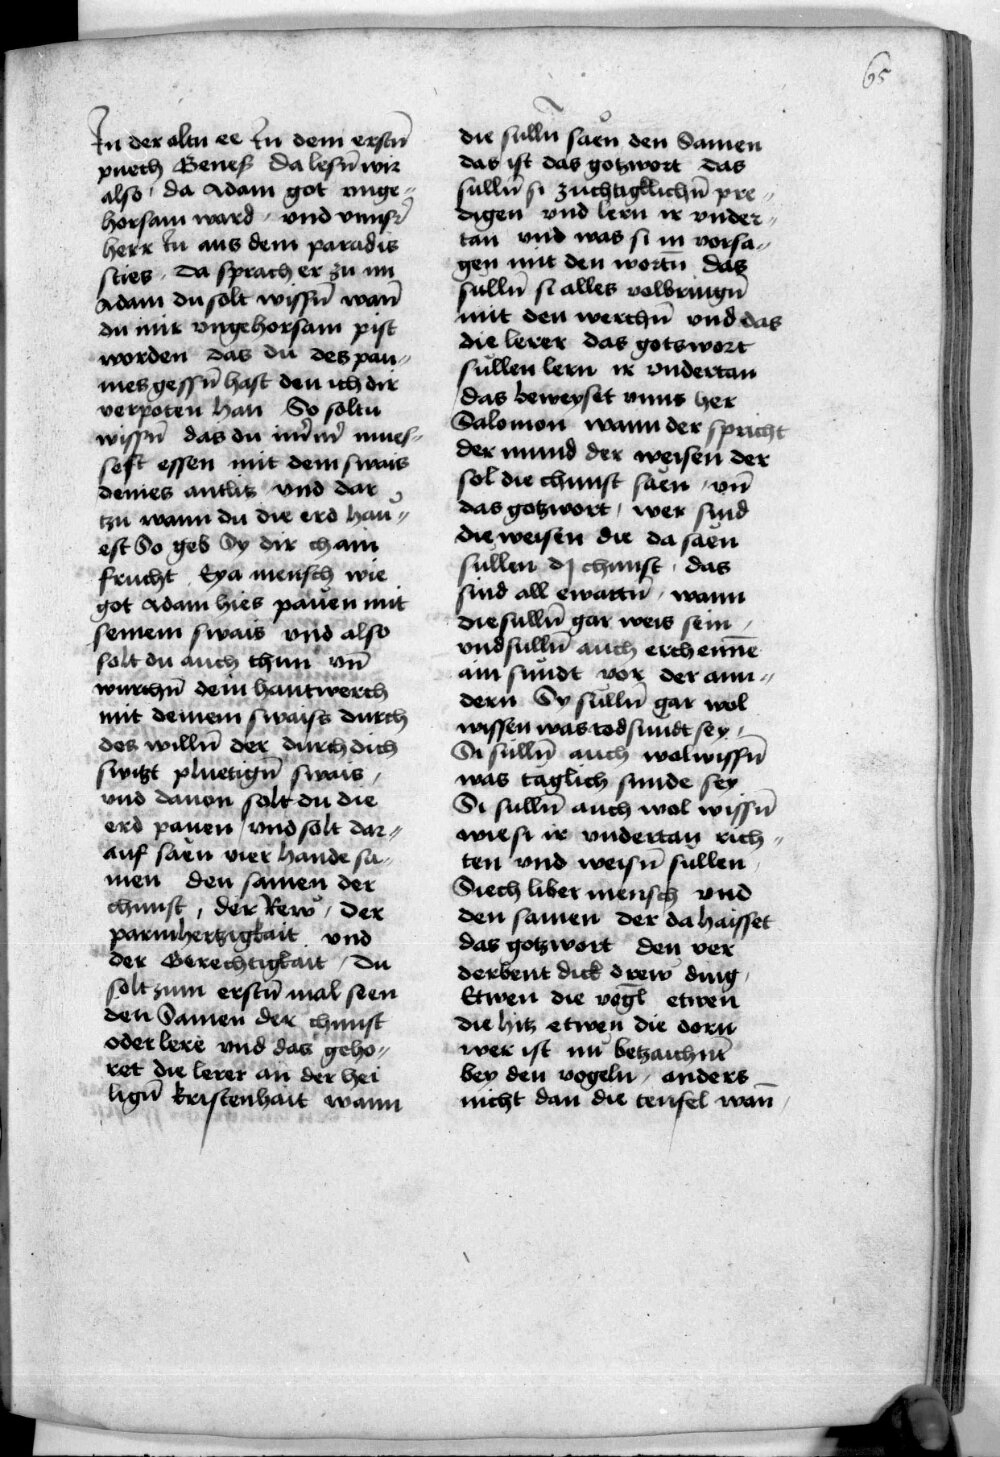 65
In der altn ee In dem erstn̄
puech Genes̄ Da lesn̄ wir
also / da Adam got vnge⸗
horsam ward / vnd vnns̄
herr In aus dem paradis
sties / Da sprach er zu im
Adam du solt wissn̄ wan̄
du mir vngehorsam pist
worden das du des pau⸗
mes gessn̄ hast den ich dir
verpoten han So soltu
wissn̄ das du im̄ m̄ mues⸗
sest essen mit dem swais
deines antlitz vnd dar
tzu wann du die erd hau⸗
est So geb Sy dir chain
frucht / Eya mensch wie
got Adam hies paůen mit
seinem swais vnd also
solt du auch thun vn̄
wurchn̄ dein hantwerch
mit deinem swaiss durch
des willn̄ der durch dich
switzt pluetign̄ swais /
vnd dauon solt du die
erd pauen / vnd solt dar⸗
auf saen vier hande sa⸗
men den samen der
chunst / der Rew / der
parmhertzigkait vnd
der Gerechtigkait / Du
solt zum erstn̄ mal seen
den Samen der chunst
oder lere vnd das geho⸗
ret die lerer an der hei
lign̄ kristenhait wann
die sulln̄ saen den Samen
das ist das gotzwort das
sulln̄ si zuchtigklichn̄ pre⸗
digen vnd lern ir vnder⸗
tan vnd was si in vorsa⸗
gen mit den wortn̄ das
sulln̄ si alles volbringn̄
mit den werchn̄ vnd das
die lerer das gotswort
sullen lern ir vndertan
das beweyset vnns her
Salomon wann der spricht
der mund der weisen der
sol die chunst saen / vn̄
das gotzwort / wer sind
die weisen die da saen
sullen dj chunst / das
sind all ewartn̄ / wann
die sulln̄ gar weis sein /
vnd sulln̄ auch erchenn̄e
ain sundt vor der ann⸗
dern Sy sulln̄ gar wol
wissen was todsundt sey /
Si sulln̄ auch wol wissn̄
was täglich sunde sey
Si sulln̄ auch wol wissn̄
wie si ir vndertan rich⸗
ten vnd weisn̄ sullen /
Siech liber mensch vnd
den samen der da haisset
das gotzwort den ver
derbent dick drew ding /
Etwen die vogl̄ etwen
die hitz etwen die dorn
wer ist nu betzaichnt̄
bey den vogeln / anders
nicht dan die teufel wan̄ /